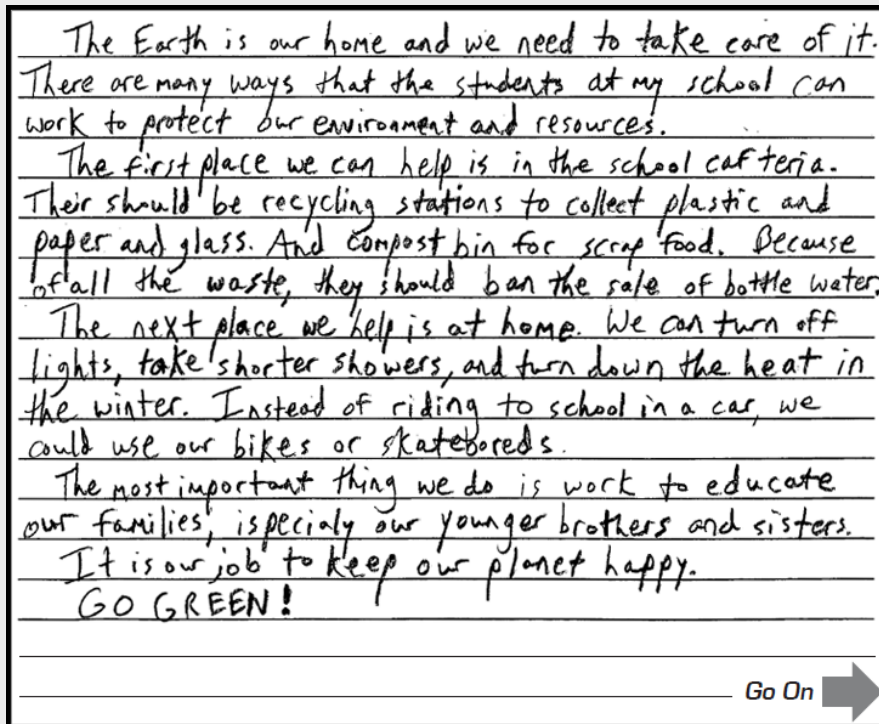 The Earth is our home and we need to take care of it.
There are many ways that the students at my school can
work to protect our environment and resources.
The first place we can help is in the school cafteria.
Their should be recycling stations to collect plastic and
paper and glass. And compost bin for scrap food. Because
of all the waste, they should ban the sale of bottle water.
The next place we help is at home. We can turn off
lights, take shorter showers, and turn down the heat in
the winter. Instead of riding to school in a car, we
could use our bikes or skateboreds.
The most important thing we do is work to educate
our families, ispecialy our younger brothers and sisters.
It is our job to keep our planet happy.
GO GREEN!
Go On